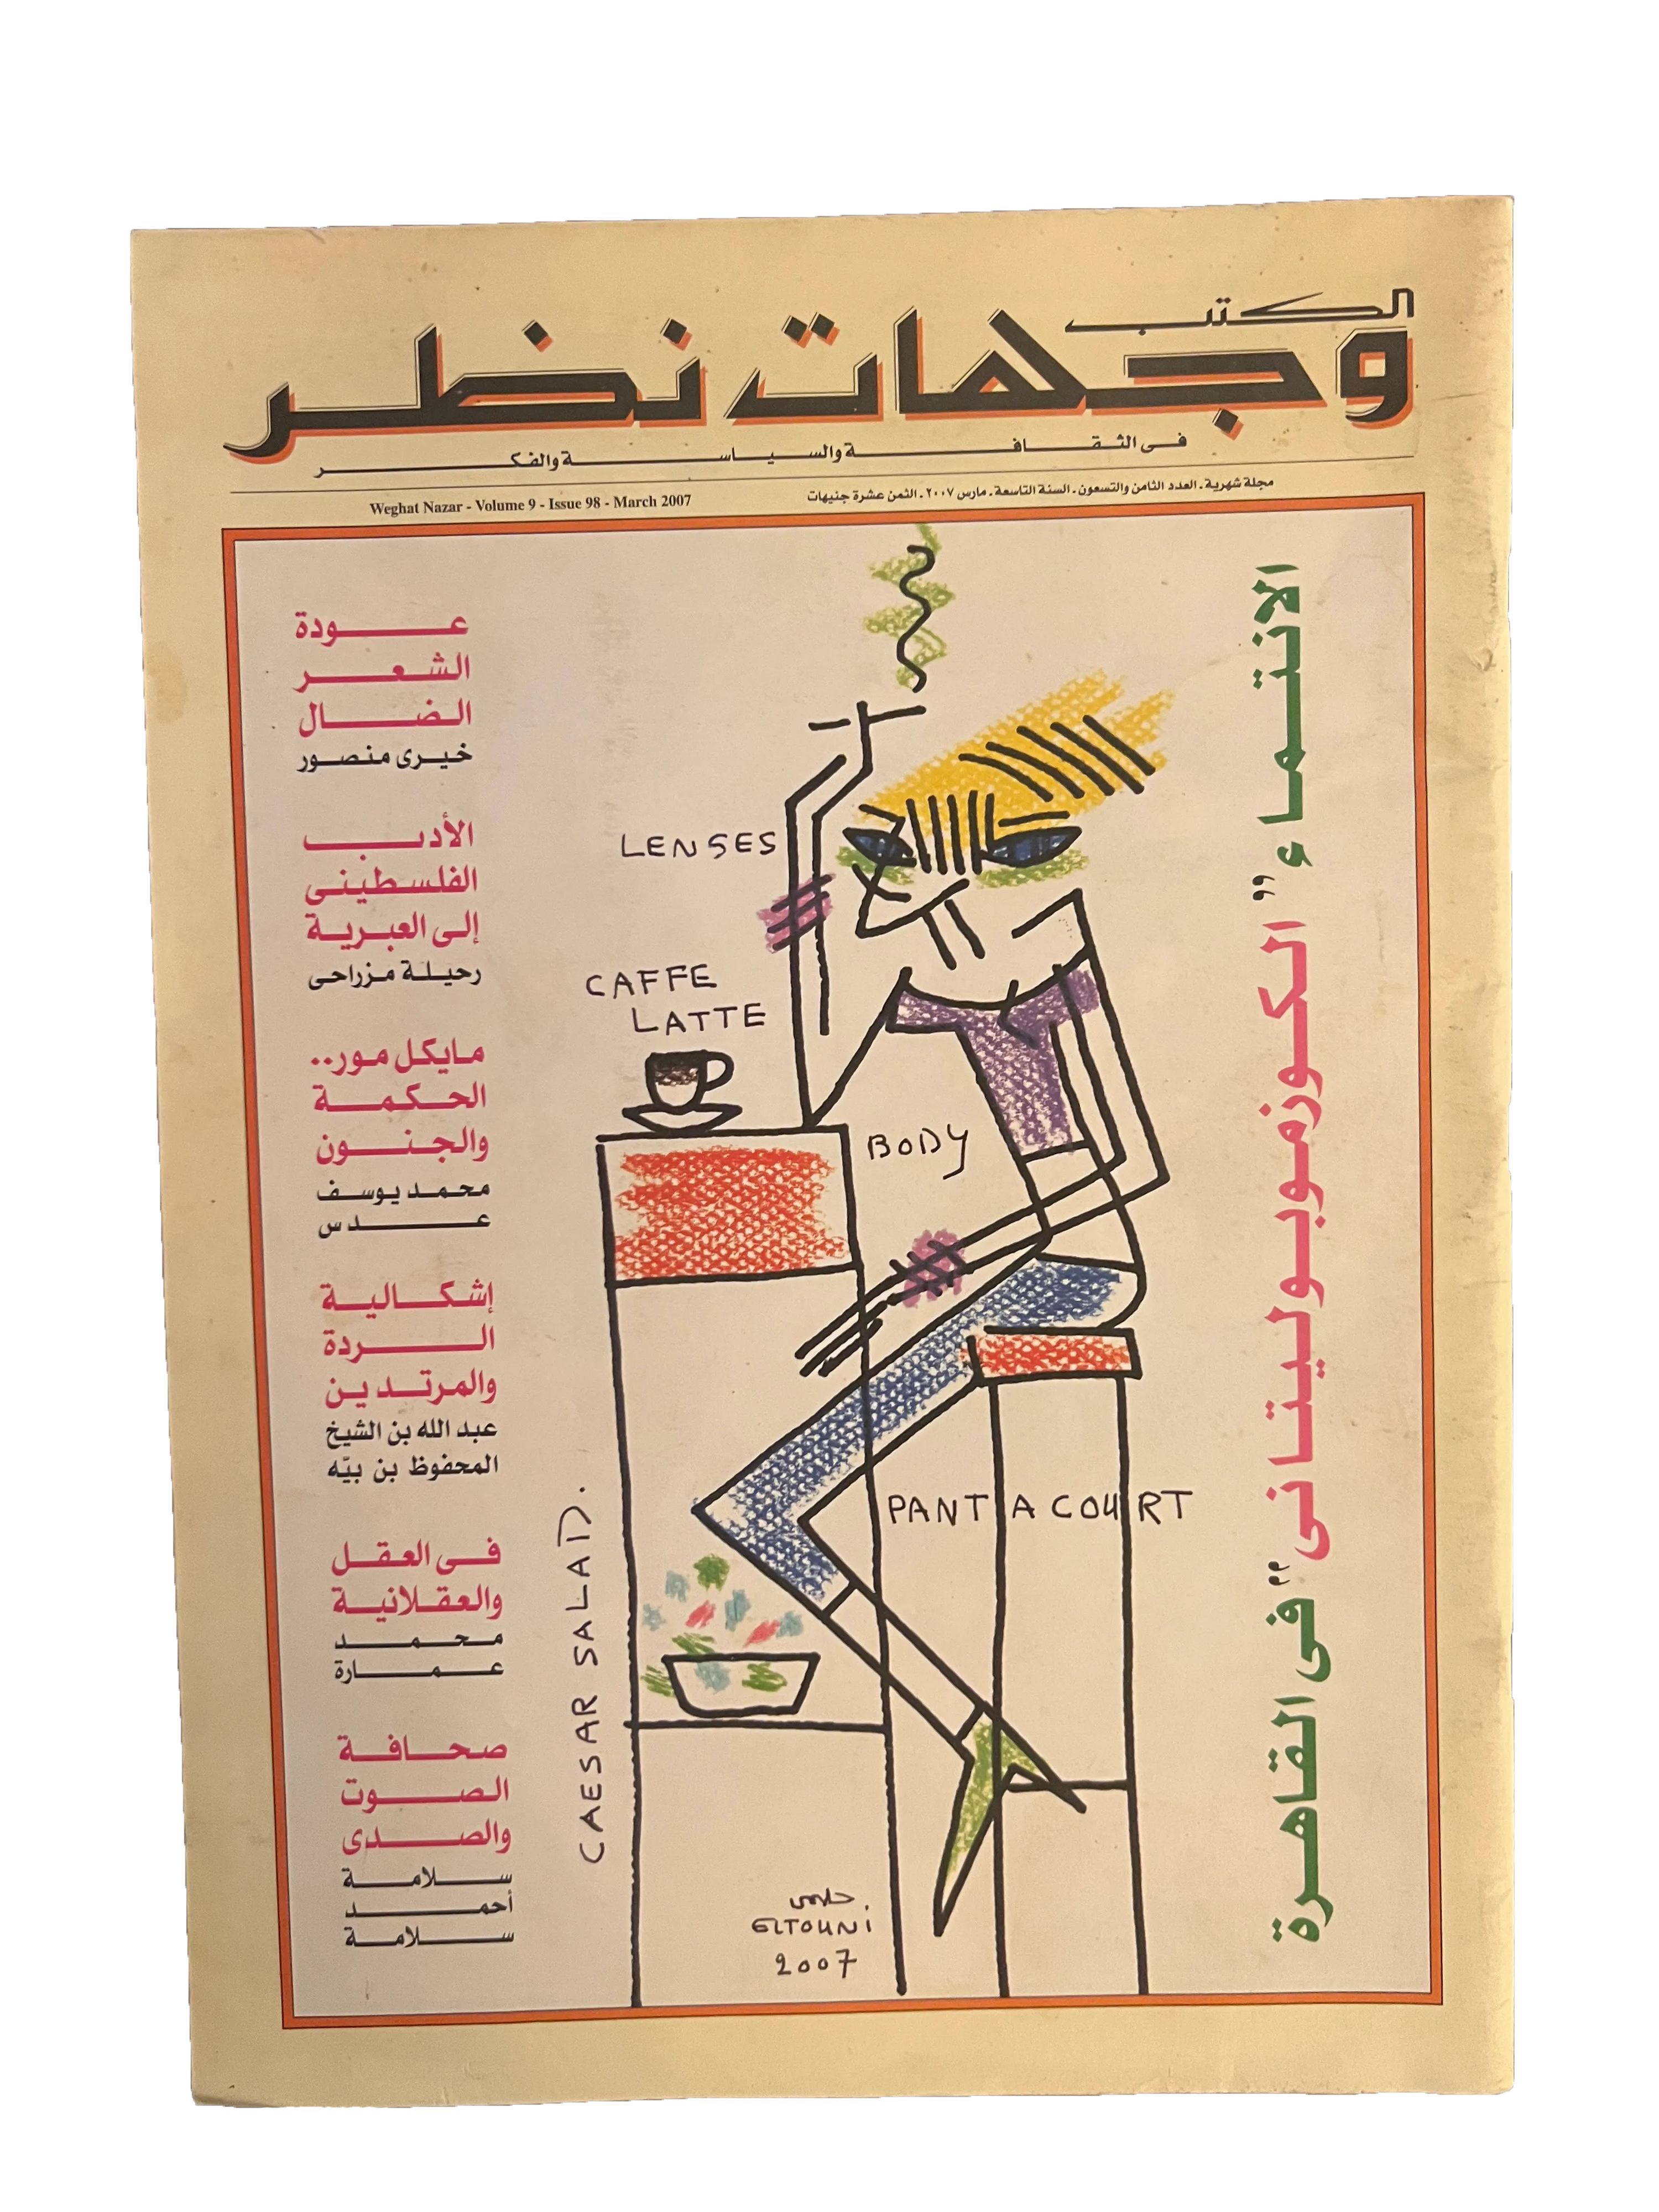 الكتب
وجهات نظر
فى الثقافة والسياسة والفكر
مجلة شهرية . العدد الثامن والتسعون . السنة التاسعة . مارس ٢٠٠٧ . الثمن عشرة جنيهات
Weghat Nazar - Volume 9 - Issue 98 - March 2007
الانتماء "الكوزموبوليتانى" فى القاهرة
عودة
الشعر
الضال
خيرى منصور
الأدب
الفلسطينى
إلى العبرية
رحيلة مزراحى
مايكل مور..
الحكمة
والجنون
محمد يوسف
عدس
إشكالية
الردة
والمرتدين
عبد الله بن الشيخ
المحفوظ بن بيّه
فى العقل
والعقلانية
محمد
عمارة
صحافة
الصوت
والصدى
سلامة
أحمد
سلامة
LENSES
CAFFE
LATTE
BODY
PANTACOURT
CAESAR SALAD.
حلمى
ELTOUNI
2007